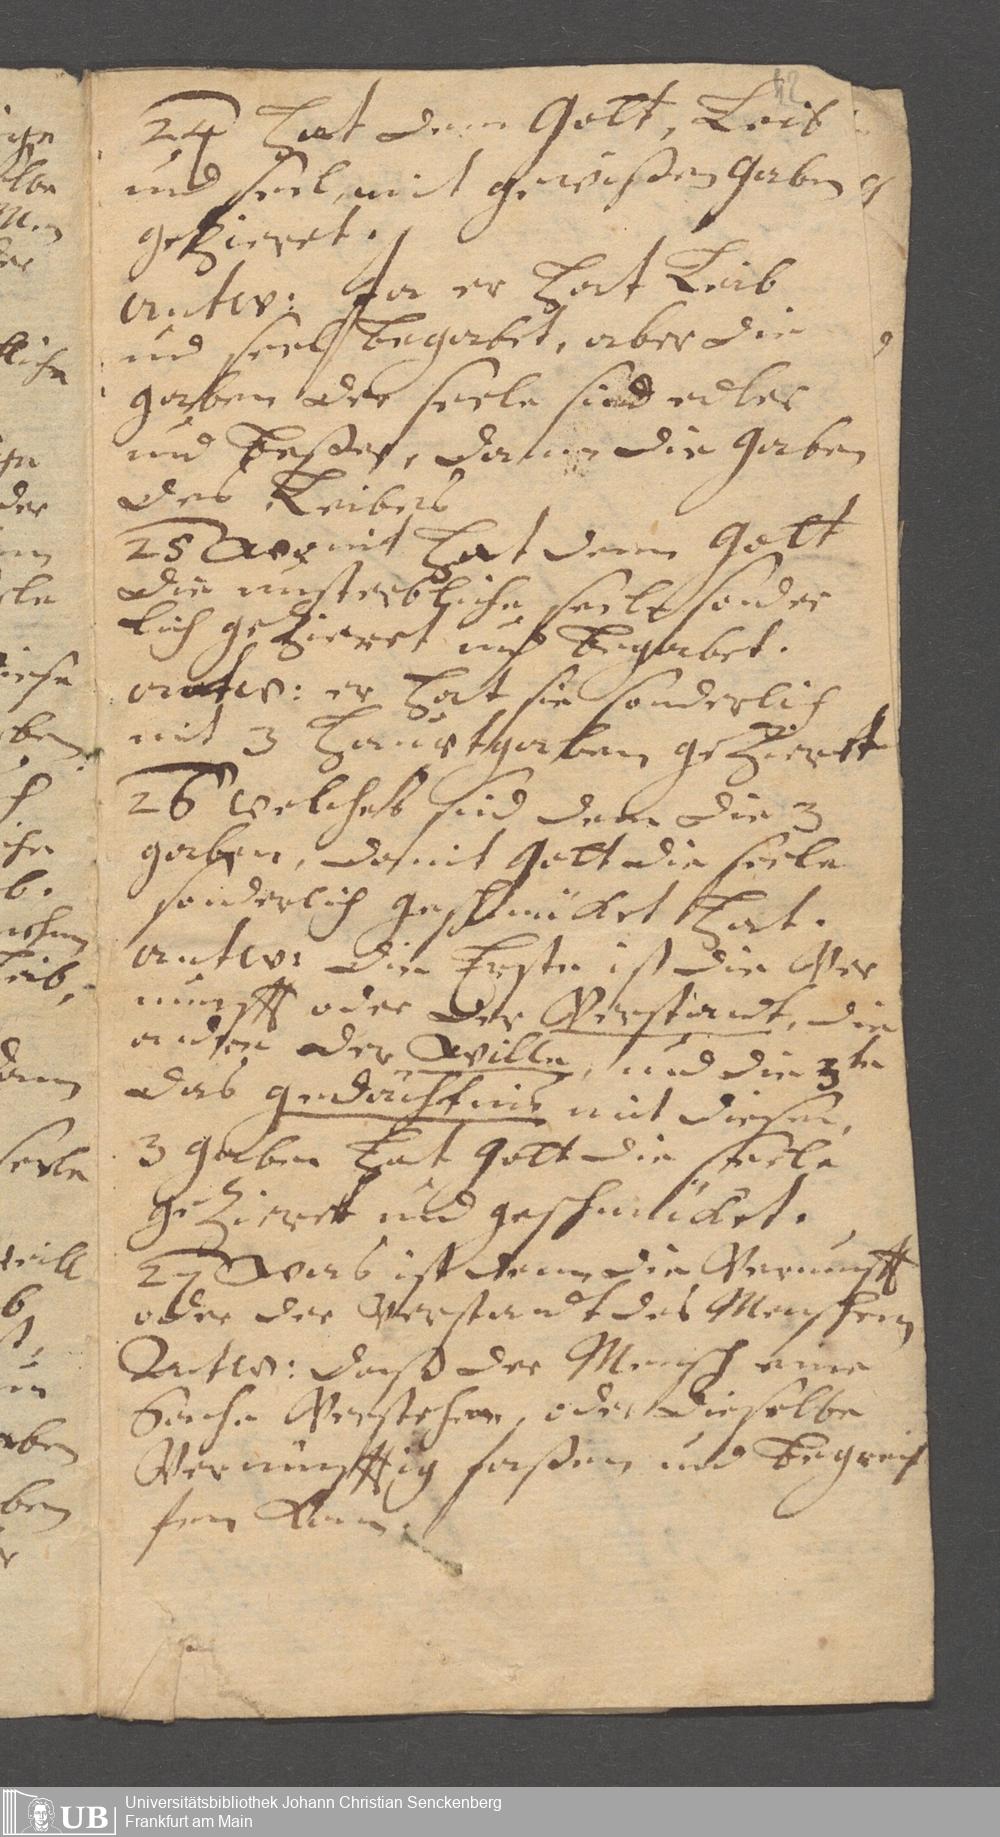 24 Hat denn Gott, Leib
und seel, mit gewißen Gaben
geZieret.
antw: Ja er Hat Leib
und seel begabet, aber die
gaben der seele sind edler
und beßer, dann die Gaben
des Leibes
25 Womit Hat denn Gott
die unsterbliche seele sonder
lich geZieret und begabet.
antw: er Hat sie sonderlich
mit 3 Hauptgaben geZierett
26 welches sind denn die 3
gaben, damit Gott die seele
sonderlich geschmücket Hat.
antw: die Erste ist die Ver
nunfft oder der Verstandt, die
ander der Wille, und die 3te
das gedächtnis mit diesen,
3 Gaben Hat Gott die seele
geZierett und geschmücket.
27 Was ist denn die Vernunfft
oder der Verstandt des Menschen
Antw: daß der Mensch eine
Sache Verstehen, oder dieselbe
Vernünfftig faßen und begreif
fen kann.
UB
Universitätsbibliothek Johann Christian Senckenberg
Frankfurt am Main